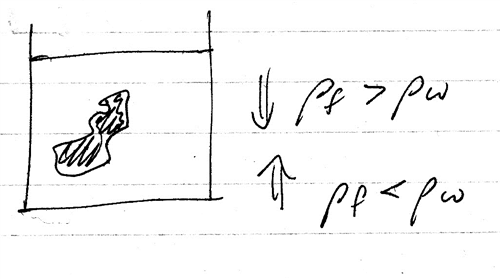 ⇓ ρf > ρw
⇑ ρf < ρw